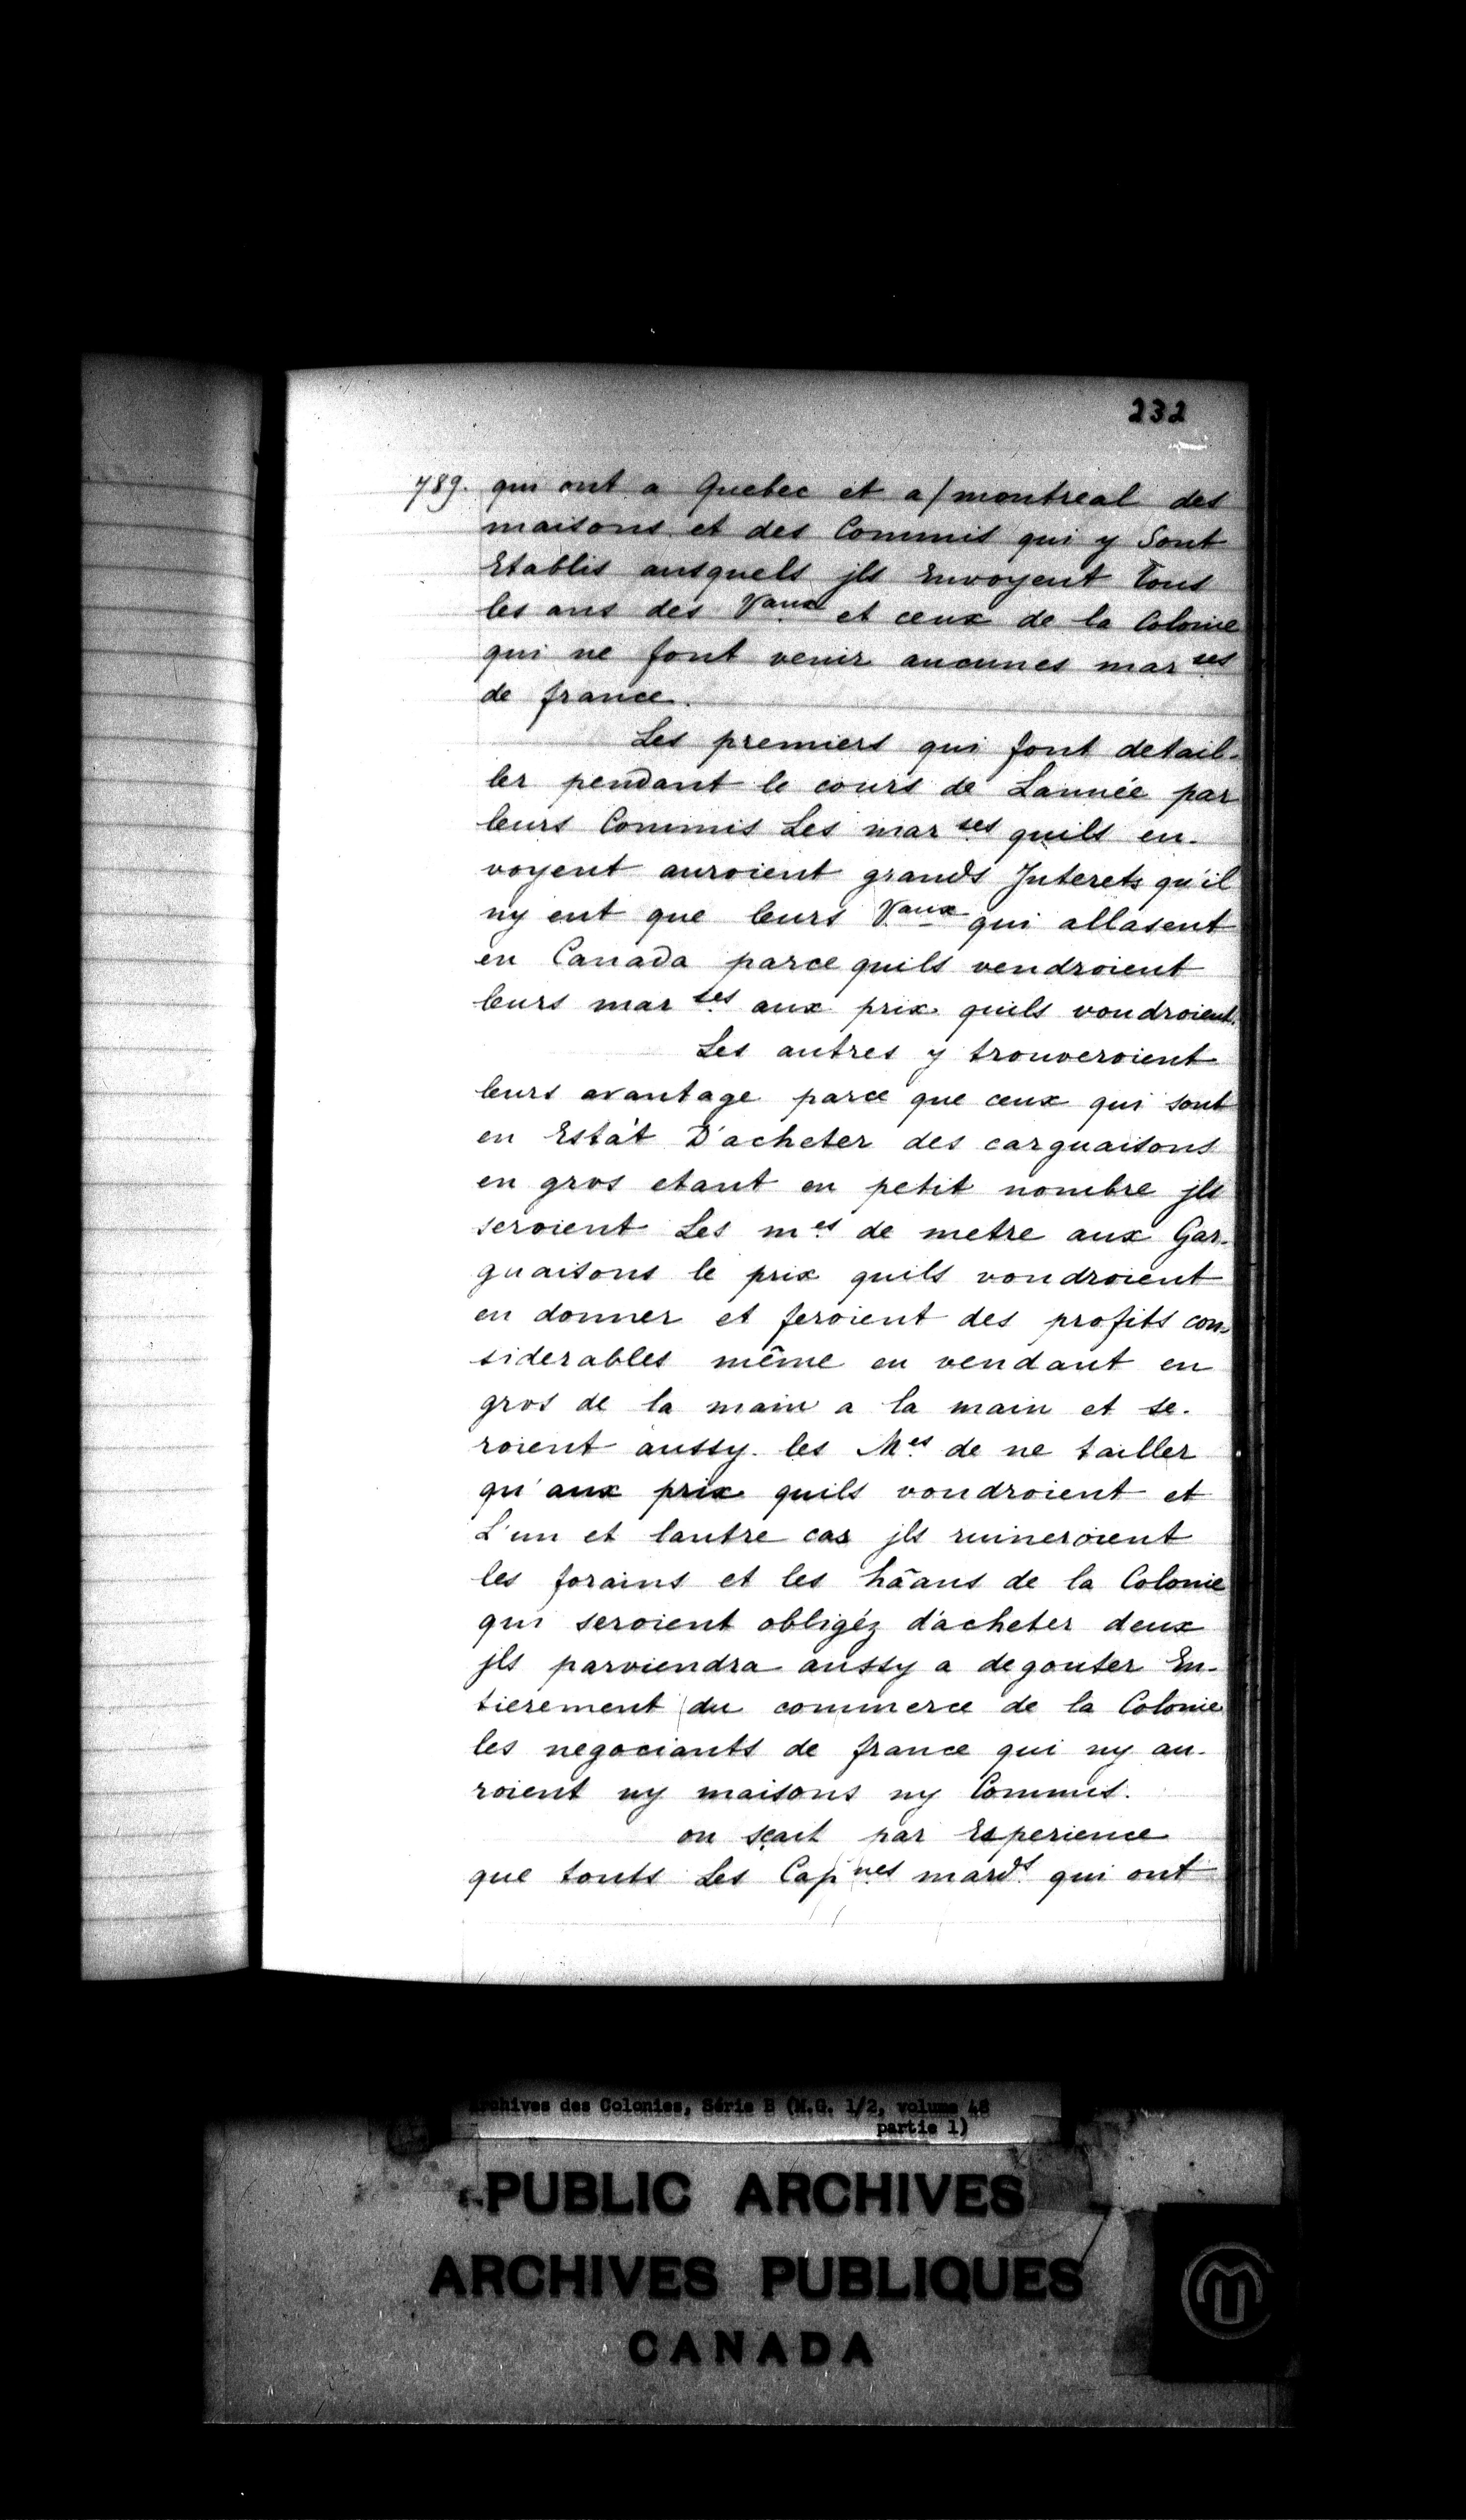 232
789. qui ont a Quebec et a/montreal des
maisons et des Commis qui y Sont
Etablis ausquels jls Envoyent Tous
les ans des Vaux et ceux de la Colonie
qui ne font venir aucunes mar ses
de france.
Les premiers qui font detail-
ler pendant le cours de Lannée par
leurs Commis Les mar ses quils en-
voyent auroient grands Interets qu'il
ny eut que leurs Vaux qui allasent
en Canada parce quils vendroient
leurs mar ses aux prix quils voudroient.
Les autres y trouveroient
leurs avantage parce que ceux qui sont
en Estat D'acheter des carguaisons
en gros etant en petit nombre jls
seroient Les mes de metre aux Gar-
guaisons le prix quils voudroient
en donner et feroient des profits con-
siderables même en vendant en
gros de la main a la main et se-
roient aussy les Mes de ne tailler
qu'aux prix quils voudroient et
L'un et lautre cas jls ruineroient
les forains et les hãans de la Colonie
qui seroient obligéz d'acheter deux
jls parviendra aussy a degouter En-
tierement du commerce de la Colonie
les negociants de france qui ny au-
roient ny maisons ny Commis.
on sçait par Esperience
que touts Les Cap nes mards qui ont
Archives des Colonies, Série B (M.G. 1/2, volume 48
partie 1)
PUBLIC ARCHIVES
ARCHIVES PUBLIQUES
CANADA